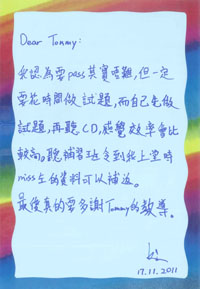 Dear Tommy:
我認為要pass其實唔難,但一定
要花時間做試題,而自己先做
試題,再聽CD,感覺效率會比
較高。聽補習班令到我上堂時
miss左的資料可以補返。
最後真的要多謝Tommy的教導。
17.11.2011